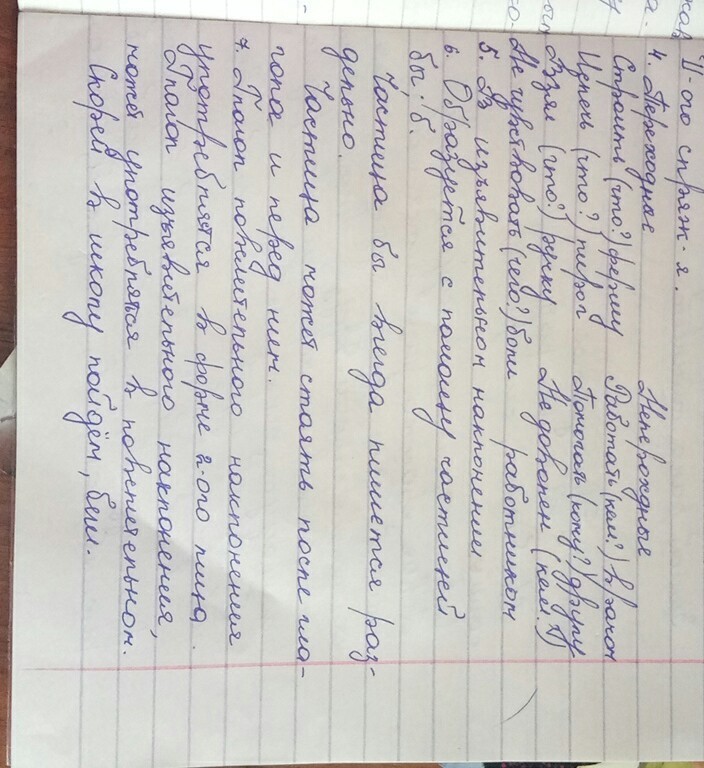 II-ого спряж-я.
4. Переходные Непереходные
Строить (что?) ферму Работать (кем?)
Испечь (что?) пирог Помогал (кому?) другу
Взял (что?) ручку Недоволен (кем?)
Не чувствовать (чего?) боли работником
5. В изъявительном наклонении
6. Образуется с помощью частицей
бы. б.
Частица бы всегда пишется раз-
дельно.
Частица может стоять после гла-
гола и перед ним.
7. Глагол повелительного наклонения
употребляется в форме 2-ого лица.
Глагол изъявительного наклонения,
может употребляться в повелительном.
Скорей в школу пойдём,